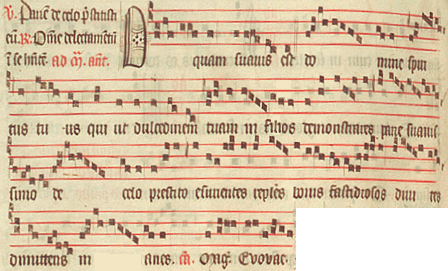 V. Panē de celo p̄stitisti
eis. R. Om̄e delectamentū
ī se hn̄tē. ad m̄. ant. O quam suauis est do mine spiri
tus tu us qui ut dulcedinem tuam in filios demonstrares pane suauis
simo de celo prestito esurientes reples bonis fastidiosos diui tes
dimittens in anes. Euouae.